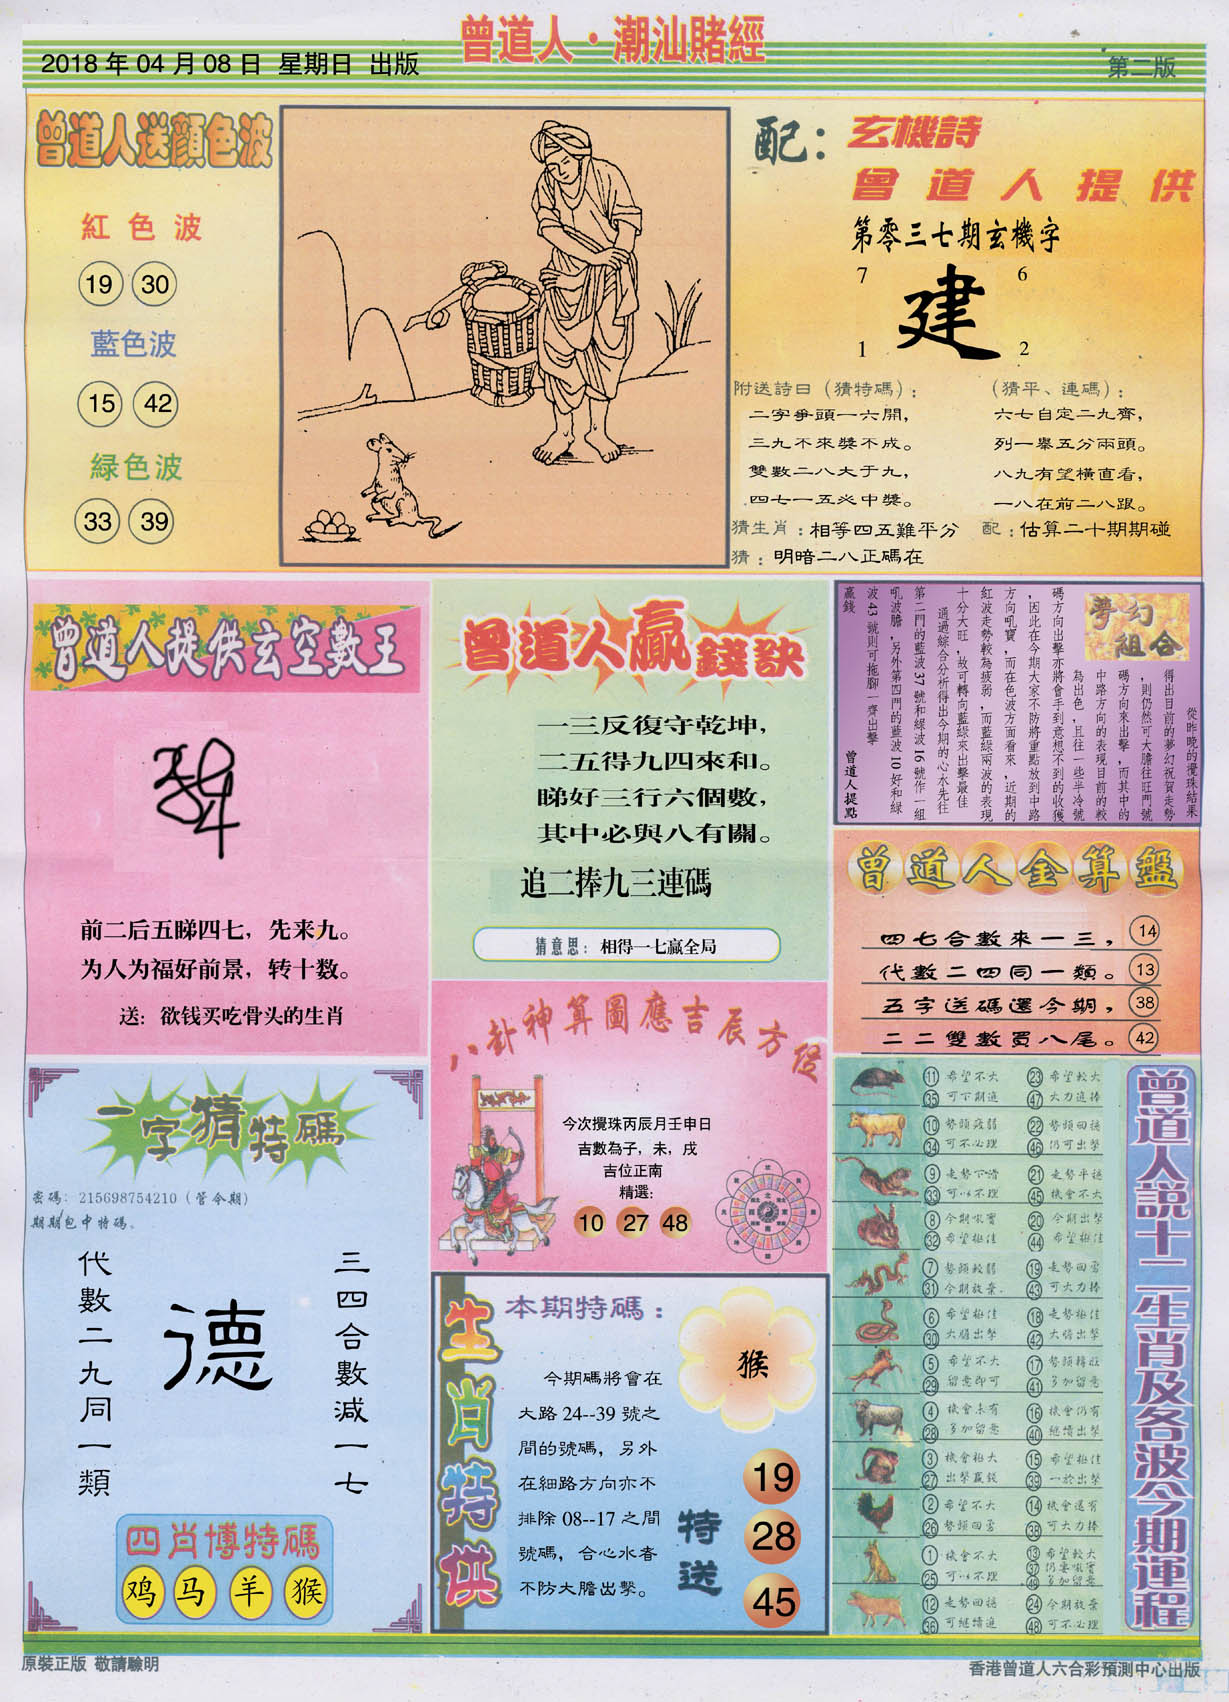 曾道人·潮汕賭經
2018 年 04 月 08 日 星期日 出版
第二版
曾道人送顏色波
紅色波
19 30
藍色波
15 42
綠色波
33 39
配：玄機詩
曾道人提供
第零三七期玄機字
7 6
建
1 2
附送詩曰（猜特碼）：
二字爭頭一六開，
三九不來獎不成。
雙數二八大于九，
四七一五必中獎。
（猜平、連碼）：
六七自定二九齊，
列一舉五分兩頭。
八九有望橫直看，
一八在前二八跟。
猜生肖：相等四五難平分
配：估算二十期期碰
猜：明暗二八正碼在
曾道人提供玄空數王
前二后五睇四七，先来九。
为人为福好前景，转十数。
送：欲钱买吃骨头的生肖
曾道人贏錢訣
一三反復守乾坤，
二五得九四來和。
睇好三行六個數，
其中必與八有關。
追二捧九三連碼
猜意思：相得一七贏全局
夢幻
組合
從昨晚的攪珠結果
得出目前的夢幻祝賀走勢
，則仍然可大膽往旺門號
碼方向來出擊，而其中的
中路方向的表現目前的較
為出色，且往一些半冷號
碼方向出擊亦將會手到意想不到的收獲
，因此在今期大家不防將重點放到中路
方向吼寶，而在色波方面看來，近期的
紅波走勢較為疲弱，而藍綠兩波的表現
十分大旺，故可轉向藍綠來出擊最佳
通過綜合分析得出今期的心水先往
第二門的藍波 37 號和綠波 16 號作一組
吼波膽，另外第四門的藍波 10 好和綠
波 43 號則可拖腳一齊出擊
贏錢
曾道人提點
曾道人金算盤
四七合數來一三， 14
代數二四同一類。 13
五字送碼還今期， 38
二二雙數買八尾。 42
八卦神算圖應吉辰方位
今次攪珠丙辰月壬申日
吉數為子，未，戌
吉位正南
精選：
10 27 48
一字猜特碼
密碼：215698754210（管令期）
期期包中特碼。
三四合數減一七
德
代數二九同一類
四肖博特碼
鸡 马 羊 猴
生肖特供
本期特碼：
猴
今期碼將會在
大路 24--39 號之
間的號碼，另外
在細路方向亦不
排除 08--17 之間
號碼，合心水者
不防大膽出擊。
特送
19
28
45
曾道人說十二生肖及各波今期運程
11 希望不大 23 希望較大
35 可下期追 47 大力追捧
10 勢頭疲弱 22 勢頭回穩
34 可不必理 46 仍可出擊
9 走勢下滑 21 走勢平穩
33 可以不理 45 機會不大
8 今期吼實 20 今期出擊
32 希望極佳 44 希望極佳
7 勢頭較弱 19 走勢回勇
31 今期放棄 43 可大力捧
6 希望極佳 18 走勢極佳
30 大膽出擊 42 大膽出擊
5 希望不大 17 勢頭轉旺
29 留意即可 41 多加留意
4 機會未有 16 機會仍有
28 多加留意 40 繼續出擊
3 機會極大 15 希望極佳
27 出擊贏錢 39 一於出擊
2 希望不大 14 機會還有
26 勢頭回勇 38 可大力捧
1 機會不大 13 希望較大
25 可以不理 37 仍要吼實
49 多加留意
12 走勢回穩 24 今期放棄
36 可繼續追 48 可不必理
原裝正版 敬請驗明
香港曾道人六合彩預測中心出版